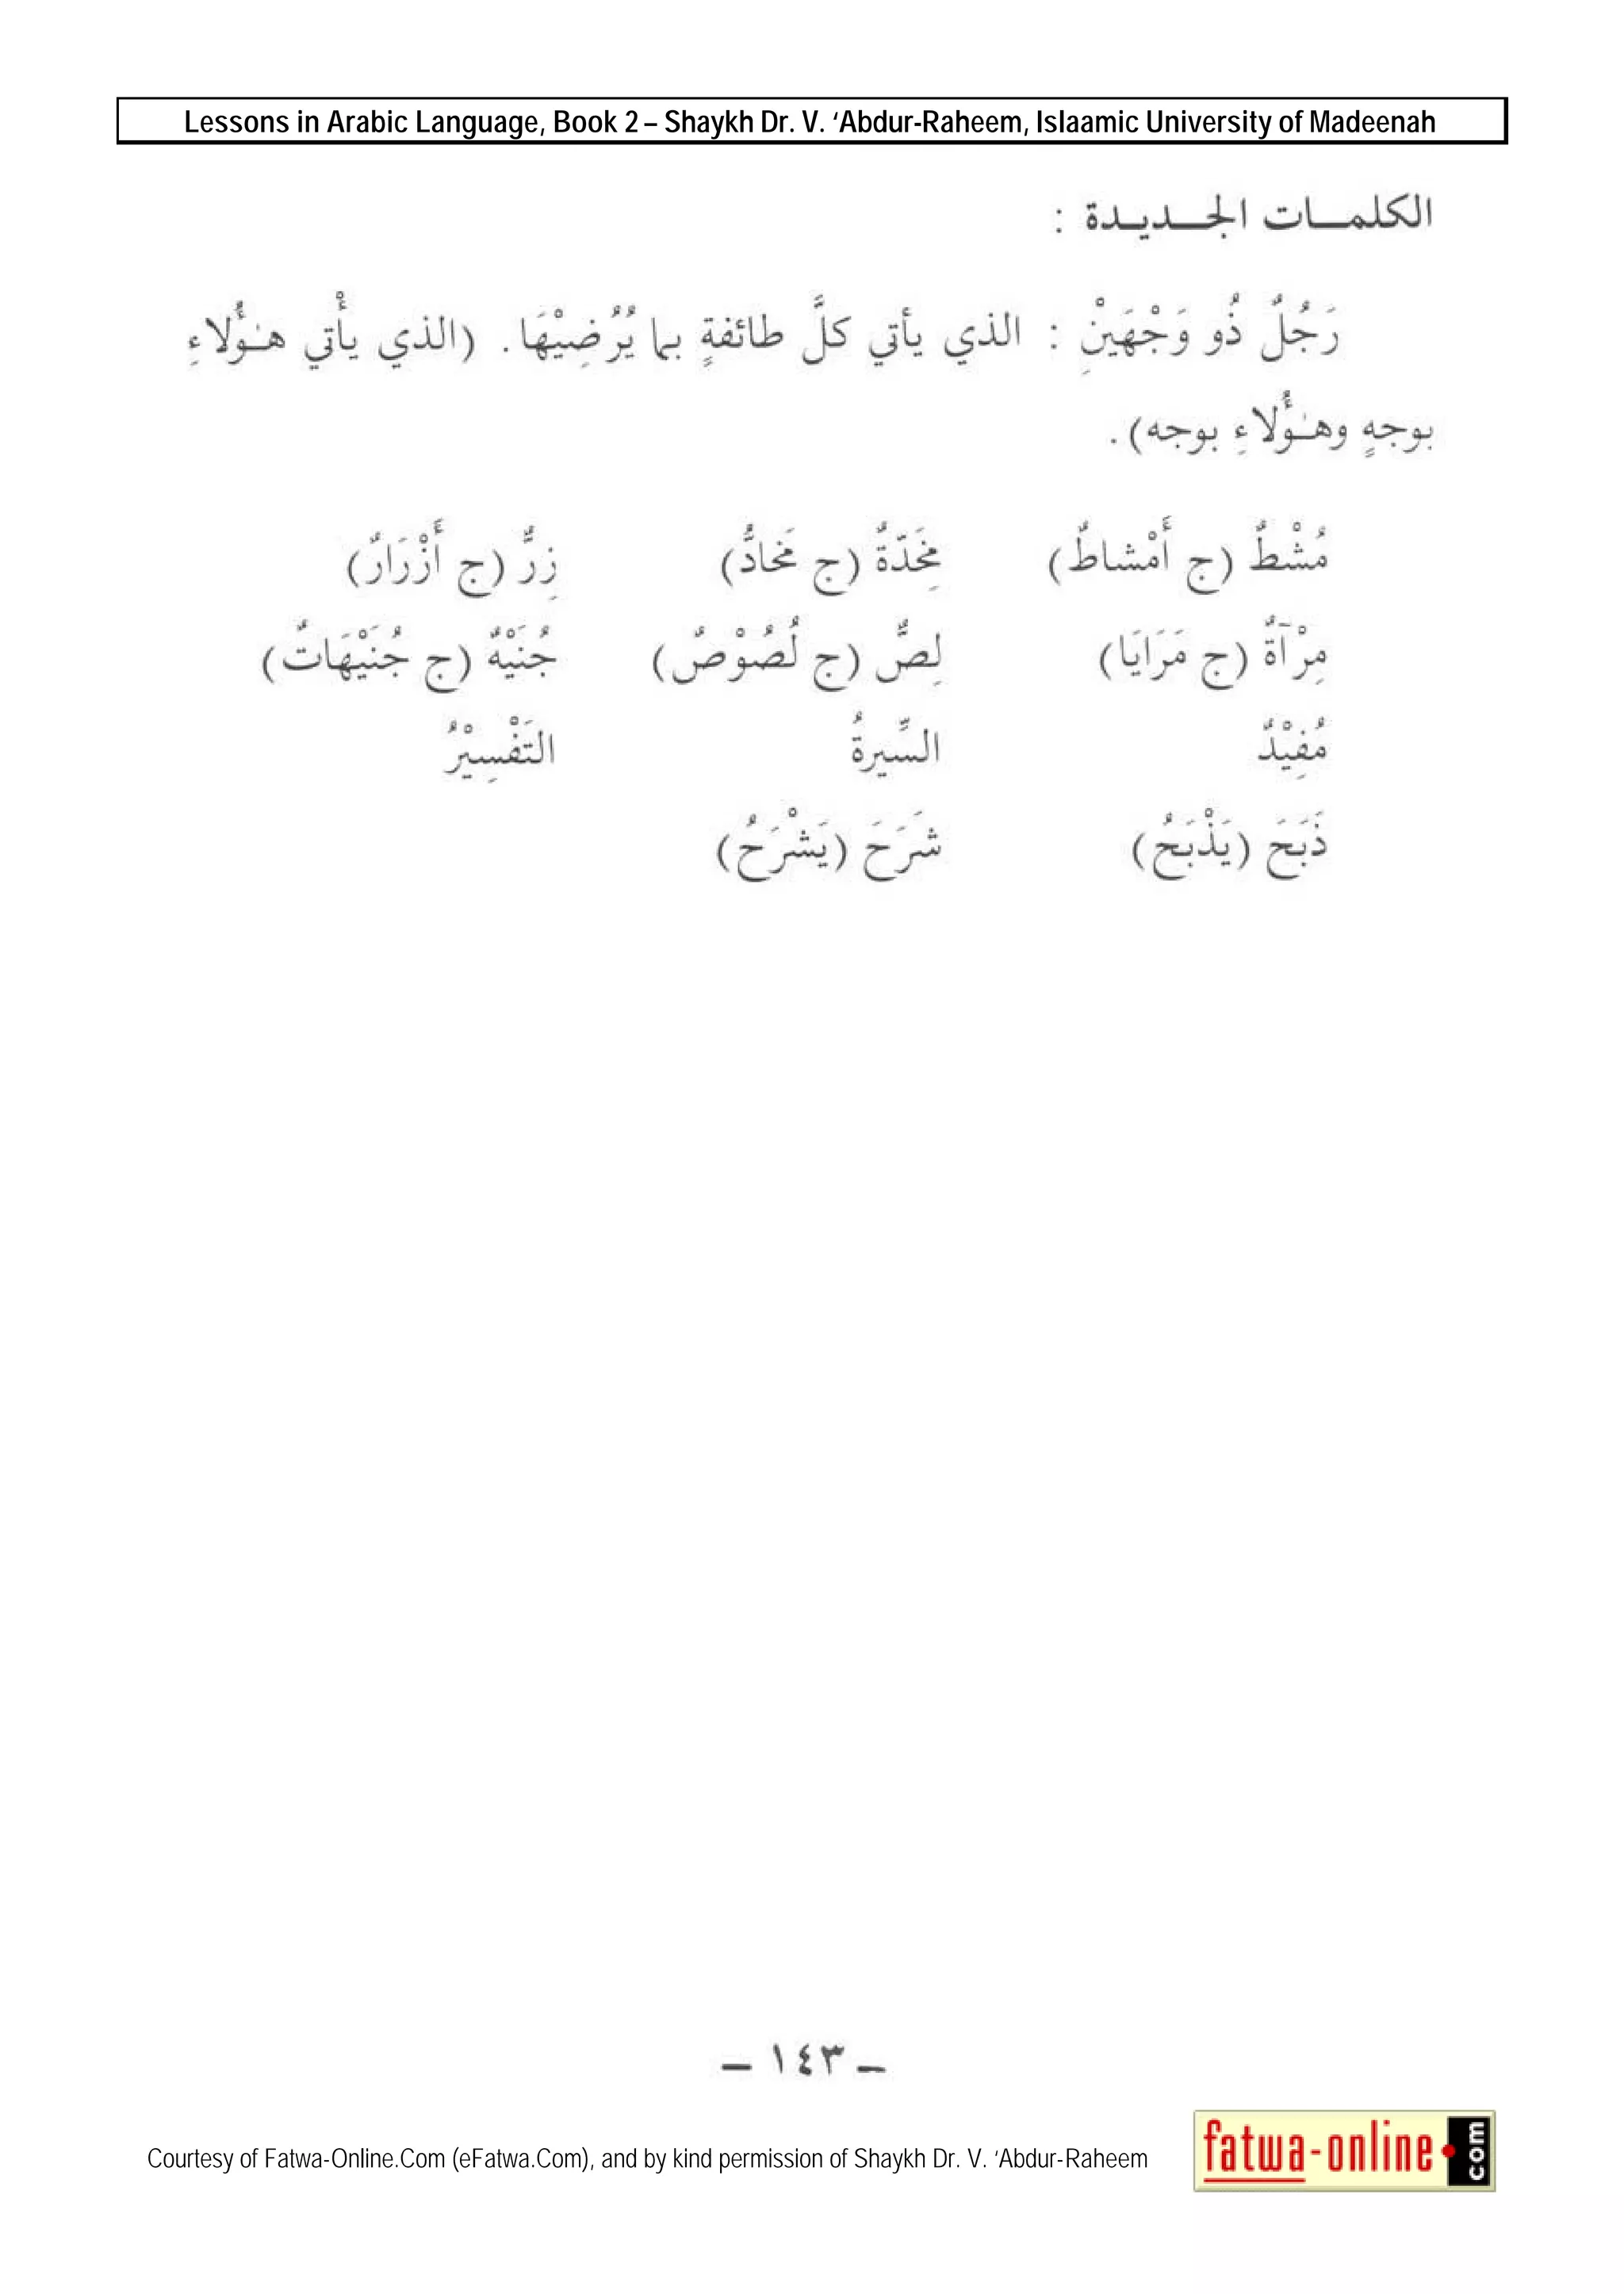 Lessons in Arabic Language, Book 2 – Shaykh Dr. V. ‘Abdur-Raheem, Islaamic University of Madeenah
الكلمـــات الجـــديـدة :
رَجُلٌ ذُو وَجْهَيْنِ : الذي يأتي كلَّ طائفةٍ بما يُرْضِيْهَا. (الذي يأْتي هـٰؤُلاءِ
بوجهٍ وهـٰؤُلاءِ بوجه).
مُشْطٌ (ج أَمْشاطٌ) مِخَدّةٌ (ج مَخادُّ) زِرٌّ (ج أَزْرَارٌ)
مِرْآةٌ (ج مَرَايَا) لِصٌّ (ج لُصُوْصٌ) جُنَيْهٌ (ج جُنَيْهَاتٌ)
مُفِيْدٌ السِّيرةُ التَفْسِيْرُ
ذَبَحَ (يَذْبَحُ) شَرَحَ (يَشْرَحُ)
– ١٤٣ –
Courtesy of Fatwa-Online.Com (eFatwa.Com), and by kind permission of Shaykh Dr. V. ‘Abdur-Raheem
fatwa-online.com